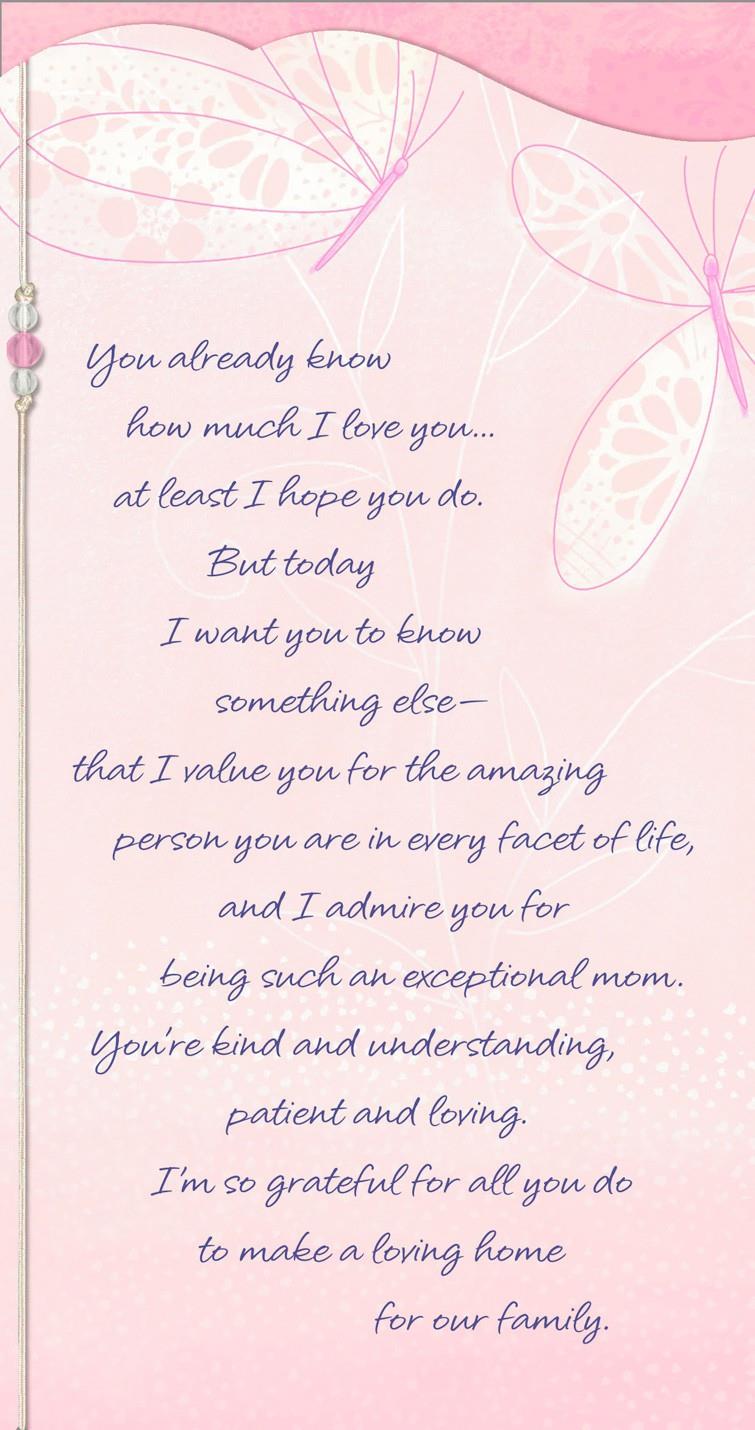 You already know
how much I love you...
at least I hope you do.
But today
I want you to know
something else—
that I value you for the amazing
person you are in every facet of life,
and I admire you for
being such an exceptional mom.
You're kind and understanding,
patient and loving.
I'm so grateful for all you do
to make a loving home
for our family.